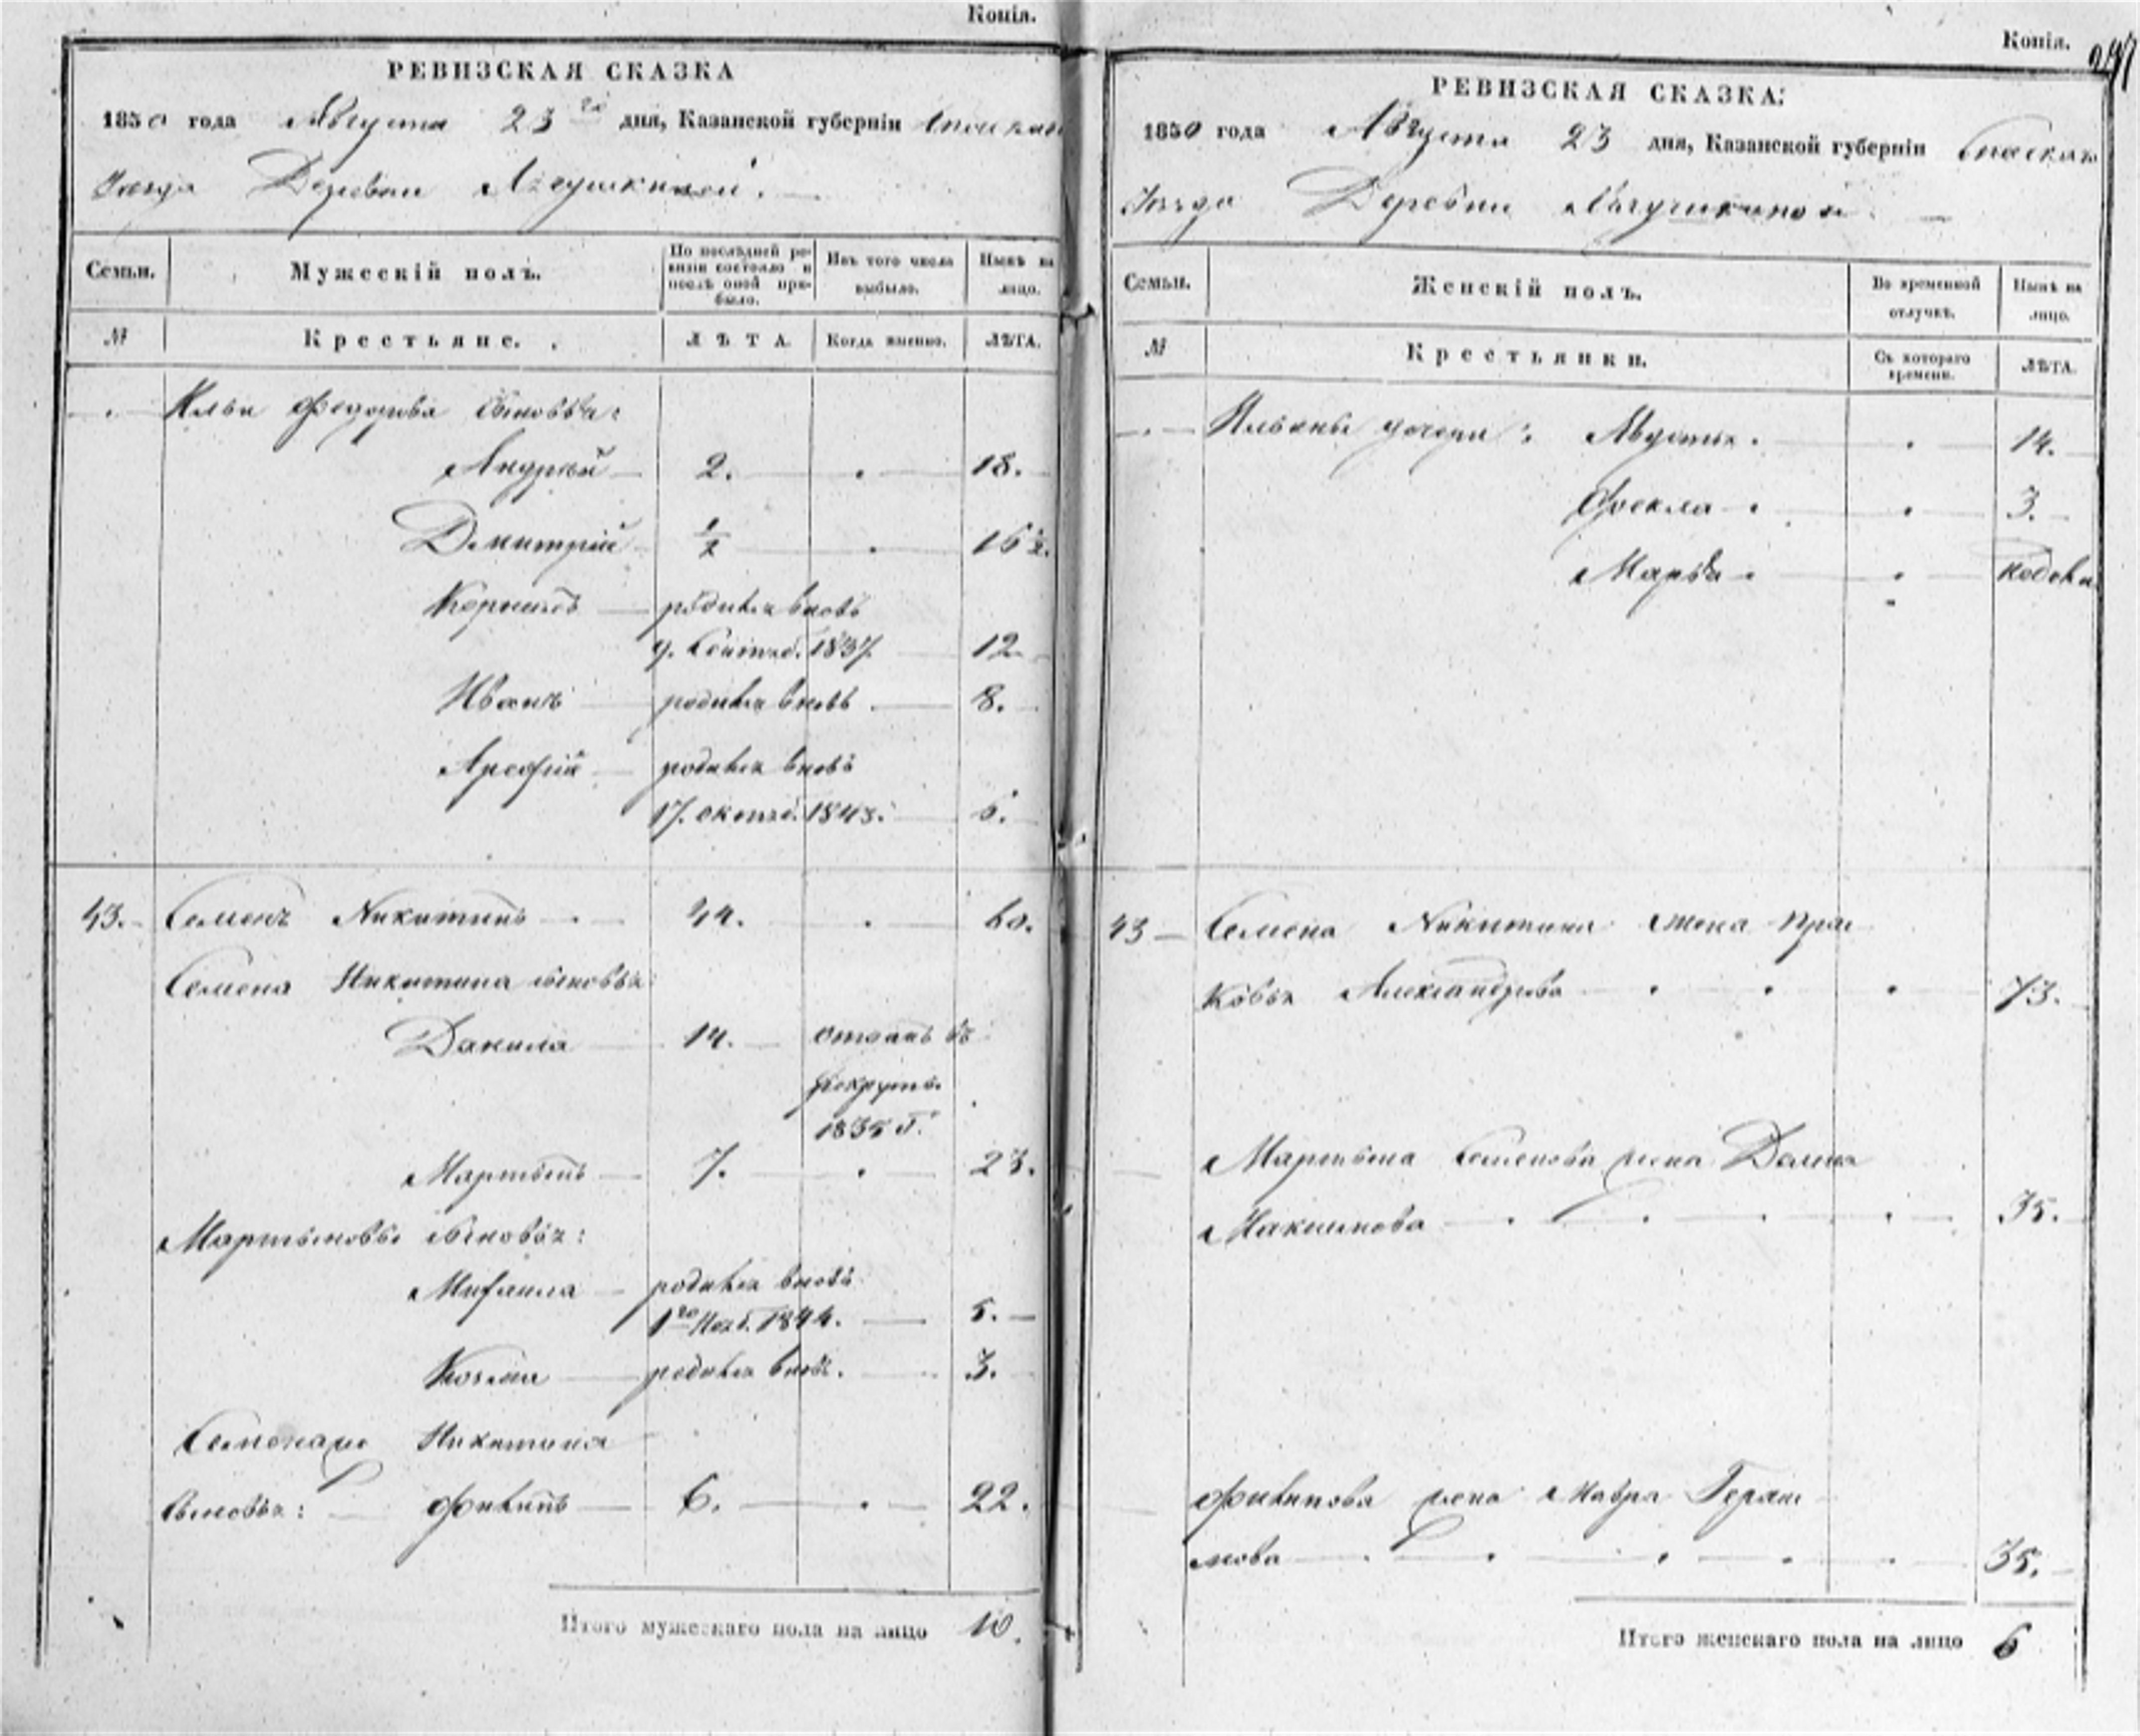 Копія.
РЕВИЗСКАЯ СКАЗКА
1850 года Августа 23го дня, Казанской губерніи
Уезда Деревни
Семьи. Мужескій полъ. По послѣдней ревизіи состояло и послѣ оной прибыло. Изъ того числа выбыло. Нынѣ на лицо.
№ Крестьяне. ЛѢТА. Когда именно. ЛѢТА.
Ильи Федорова сыновья:
Андрей 2. 18.
Дмитрій 1/2 16 1/2.
Корнилъ родился вновь
9. Сентяб. 1837. 12
Иванъ родился вновь 8.
Арефій родился вновь
17. октяб. 1843. 6.
43. Семенъ Никитинъ 44. 60.
Семена Никитина сыновья:
Данила 14. отданъ въ
рекруты
1835 г.
Мартынъ 7. 23.
Мартыновы сыновья:
Михаила родился вновь
1го Нояб. 1844. 5.
Козма родился вновь. 3.
Семена же Никитина
сыновья: Филипъ 6. 22.
Итого мужескаго пола на лицо 10.
Копія.
РЕВИЗСКАЯ СКАЗКА:
1850 года Августа 23 дня, Казанской губерніи Спаскаго
Уезда Деревни
Семьи. Женскій полъ. Во временной отлучкѣ. Нынѣ на лицо.
№ Крестьянки. Съ котораго времени. ЛѢТА.
Ильины дочери: Авдотья. 14.
Фекла 3.
Марья
43 Семена Никитина жена Прас
ковья Александрова 73.
Мартына Семенова жена Домна
Макимова 35.
Филипова жена Мавра Гераси
мова 35.
Итого женскаго пола на лицо 6